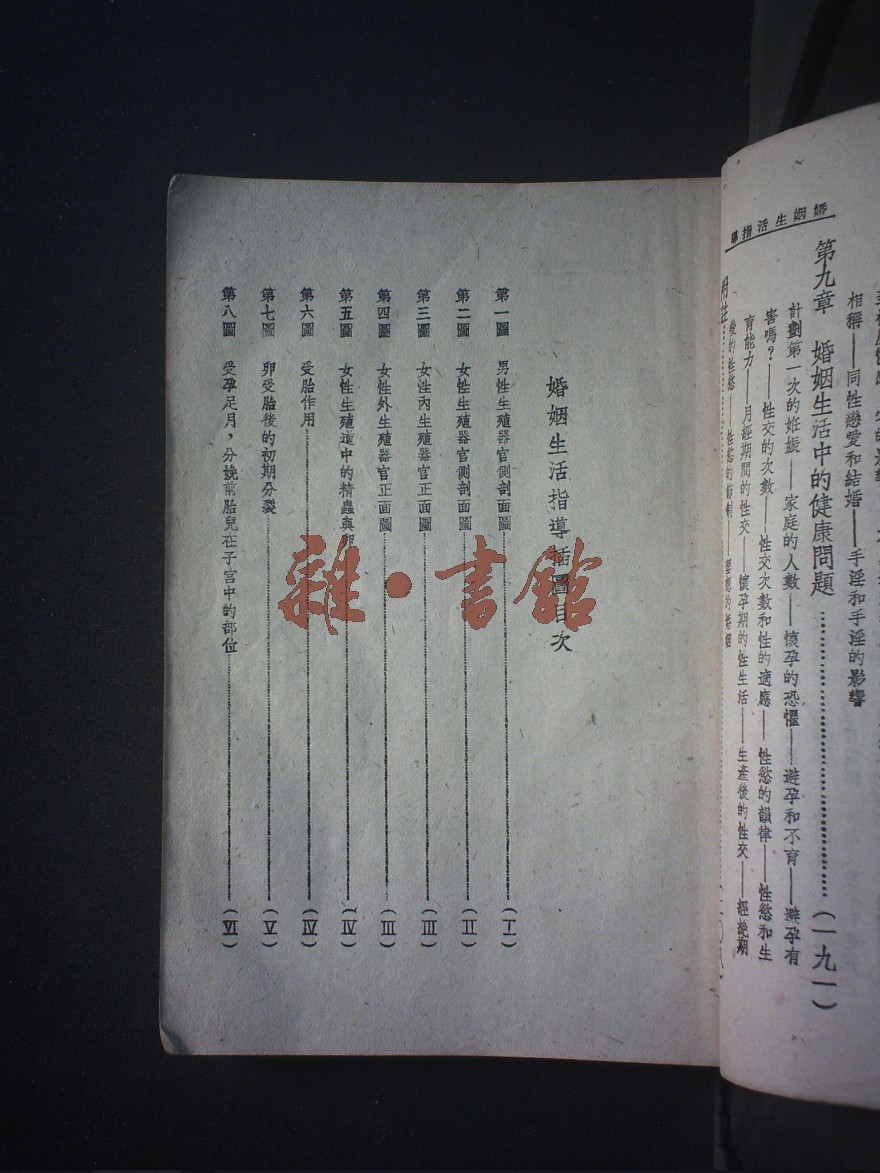 婚姻生活指導
相稱——同性戀愛和結婚——手淫和手淫的影響
第九章 婚姻生活中的健康問題……(一九一)
計劃第一次的妊娠——家庭的人數——懷孕的恐懼——避孕和不育——避孕有
害嗎?——性交的次數——性交次數和性的適應——性慾的韻律——性慾和生
育能力——月經期間的性交——懷孕期的性生活——生產後的性交——經絕期
後的性慾——性慾的
婚姻生活指導插圖目次
第一圖 男性生殖器官側剖面圖……(I)
第二圖 女性生殖器官側剖面圖……(II)
第三圖 女性內生殖器官正面圖……(III)
第四圖 女性外生殖器官正面圖……(III)
第五圖 女性生殖道中的精蟲與卵……(IV)
第六圖 受胎作用……(IV)
第七圖 卵受胎後的初期分裂……(V)
第八圖 受孕足月,分娩前胎兒在子宮中的部位……(VI)
雜·書館